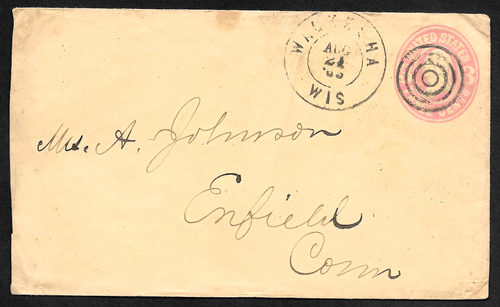 WAUKESHA
AUG
24
WIS
UNITED STATES
Mr. A. Johnson
Enfield
Conn